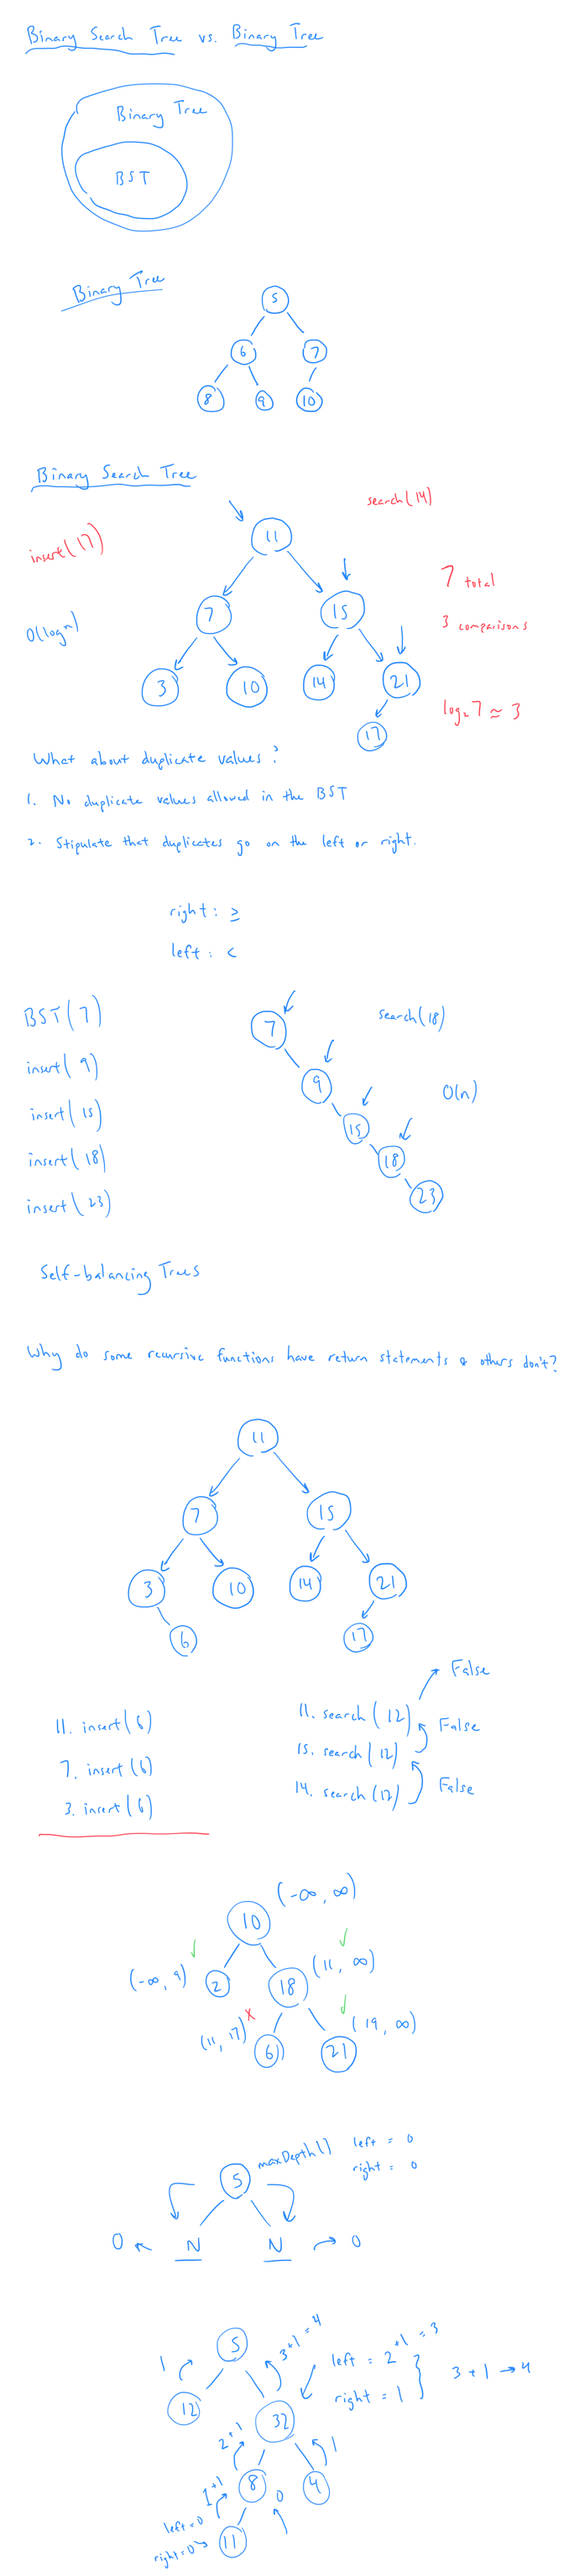 Binary Search Tree vs. Binary Tree
Binary Tree
BST
Binary Tree
5
6 7
8 9 10
Binary Search Tree
search(14)
insert(17)
11
7 total
7 15
O(logn)
3 comparisons
3 10 14 21
log₂7 ≈ 3
17
What about duplicate values?
1. No duplicate values allowed in the BST
2. Stipulate that duplicates go on the left or right.
right: ≥
left: <
BST(7)
insert(9)
insert(15)
insert(18)
insert(23)
7
9
15
18
23
search(18)
O(n)
Self-balancing Trees
Why do some recursive functions have return statements & others don't?
11
7 15
3 10 14 21
6 17
11. insert(6)
7. insert(6)
3. insert(6)
False
11. search(12)
False
15. search(12)
False
14. search(12)
(-∞, ∞)
10
(-∞, 9) 2 18 (11, ∞)
(11, 17) x 6 21 (19, ∞)
maxDepth()
left = 0
right = 0
5
0 N N 0
5
3+1=4
1
left = 2+1 = 3
right = 1
3+1 → 4
12 32
2+1 1
1+1 8 0 4
left=0
right=0 11